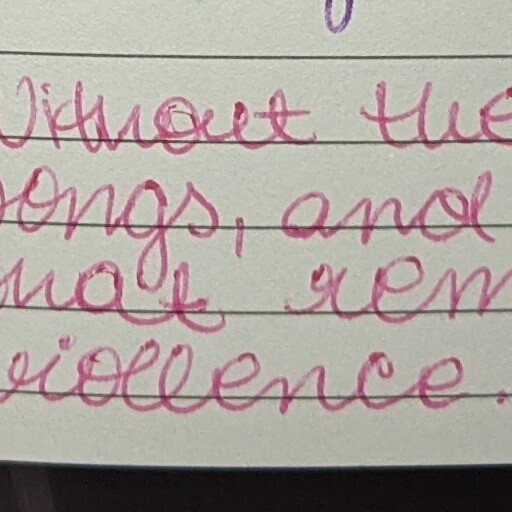 Without the
ongs, and
hat rem
viollence.